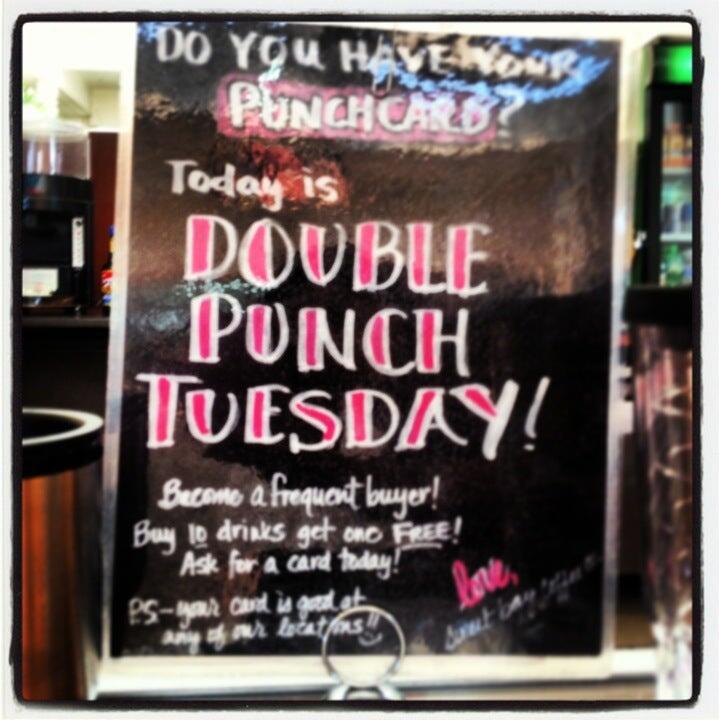 DO YOU HAVE YOUR
PUNCHCARD?
Today is
DOUBLE
PUNCH
TUESDAY!
Become a frequent buyer!
Buy 10 drinks get one FREE!
Ask for a card today!
P.S.-your card is good at
any of our locations!!
love,
sweet bay